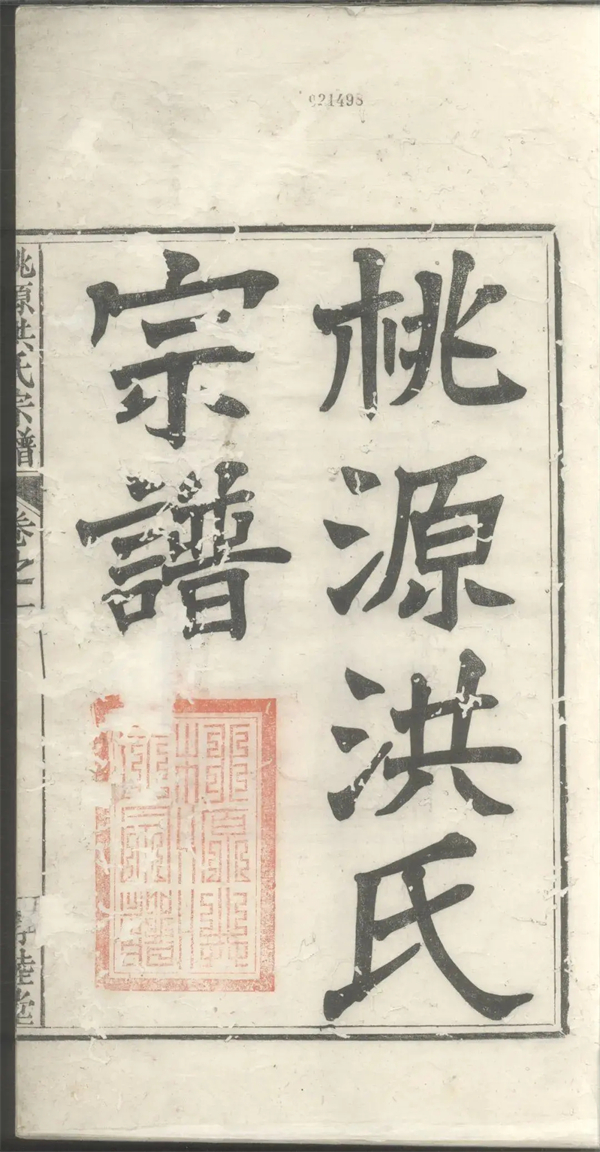 921498
桃源洪氏
宗譜
桃源洪氏宗譜
卷之一
睦堂